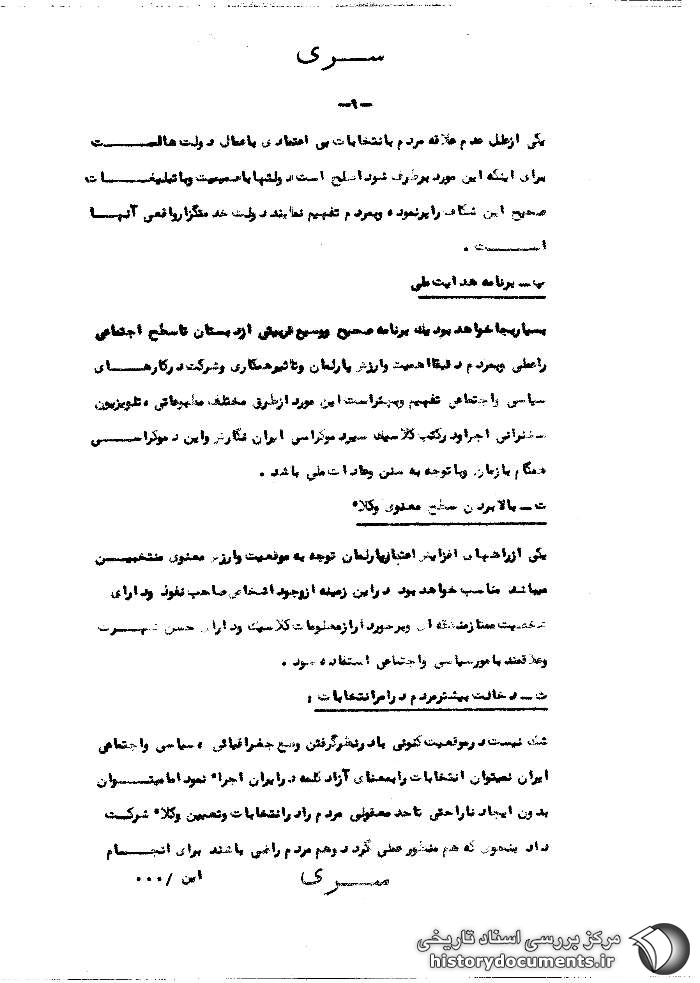 سری
-۹-
یکی از علل عدم علاقه مردم بانتخابات بی اعتمادی باعمال دولت هااست
برای اینکه این مورد برطرف شود اصلح است دولتها با صمیمیت و با تبلیغات
صحیح این شکاف را پر نموده و بمردم تفهیم نمایند دولت خدمتگزار واقعی آنها
است .
پ- برنامه هدایت ملی
بسیار بجا خواهد بود یک برنامه صحیح و وسیع تربیتی از دبستان تا سطح اجتماعی
را عملی و بمردم دقیقا اهمیت و ارزش پارلمان و تاثیر همکاری و شرکت در کارهای
سیاسی و اجتماعی تفهیم و بهتر است این مورد از طرق مختلف مطبوعاتی ، تلویزیون
سخنرانی اجرا و در کتب کلاسیک سیر دموکراسی ایران نگارش و این دموکراسی
همگام با زمان و با توجه به سنن و عادات ملی باشد .
ت- بالا بردن سطح معنوی وکلاء
یکی از راههای افزایش اعتبار پارلمان توجه به موقعیت و ارزش معنوی منتخبین
میباشد مناسب خواهد بود در این زمینه از وجود اشخاص صاحب نفوذ و دارای
شخصیت ممتاز منطقه ای و برخوردار از معلومات کلاسیک و دارای حسن شهرت
و علاقمند بامور سیاسی و اجتماعی استفاده شود .
ث- دخالت بیشتر مردم در امر انتخابات :
شک نیست در موقعیت کنونی با در نظر گرفتن وضع جغرافیائی ، سیاسی و اجتماعی
ایران نمیتوان انتخابات را بمعنای آزاد کلمه در ایران اجراء نمود اما میتوان
بدون ایجاد ناراحتی تا حد معقولی مردم را در انتخابات و تعیین وکلاء شرکت
داد بنحوی که هم منظور عملی گردد و هم مردم راضی باشند برای انجام
این /۰۰۰
سری
مرکز بررسی اسناد تاریخی
historydocuments.ir